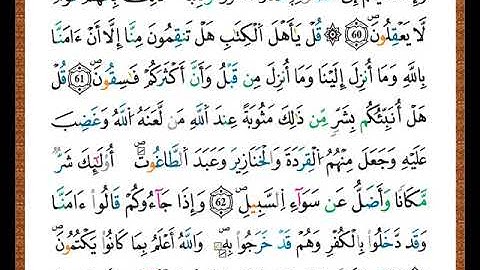 لَّا يَعْقِلُونَ ۖ ٦٠ ۞ قُلْ يَٰأَهْلَ الْكِتَٰبِ هَلْ تَنقِمُونَ مِنَّا إِلَّا أَنْ ءَامَنَّا
بِاللَّهِ وَمَا أُنزِلَ إِلَيْنَا وَمَا أُنزِلَ مِن قَبْلُ وَأَنَّ أَكْثَرَكُمْ فَٰسِقُونَ ۖ ٦١ قُلْ
هَلْ أُنَبِّئُكُم بِشَرٍّ مِّن ذَٰلِكَ مَثُوبَةً عِندَ اللَّهِ مَن لَّعَنَهُ اللَّهُ وَغَضِبَ
عَلَيْهِ وَجَعَلَ مِنْهُمُ الْقِرَدَةَ وَالْخَنَازِيرَ وَعَبَدَ الطَّٰغُوتَ ۖ أُوْلَٰئِكَ شَرٌّ
مَّكَانًا وَأَضَلُّ عَن سَوَآءِ السَّبِيلِ ۖ ٦٢ وَإِذَا جَآءُوكُمْ قَالُوا ءَامَنَّا
وَقَد دَّخَلُوا بِالْكُفْرِ وَهُمْ قَدْ خَرَجُوا بِهِ ۖ وَاللَّهُ أَعْلَمُ بِمَا كَانُوا يَكْتُمُونَ ۖ